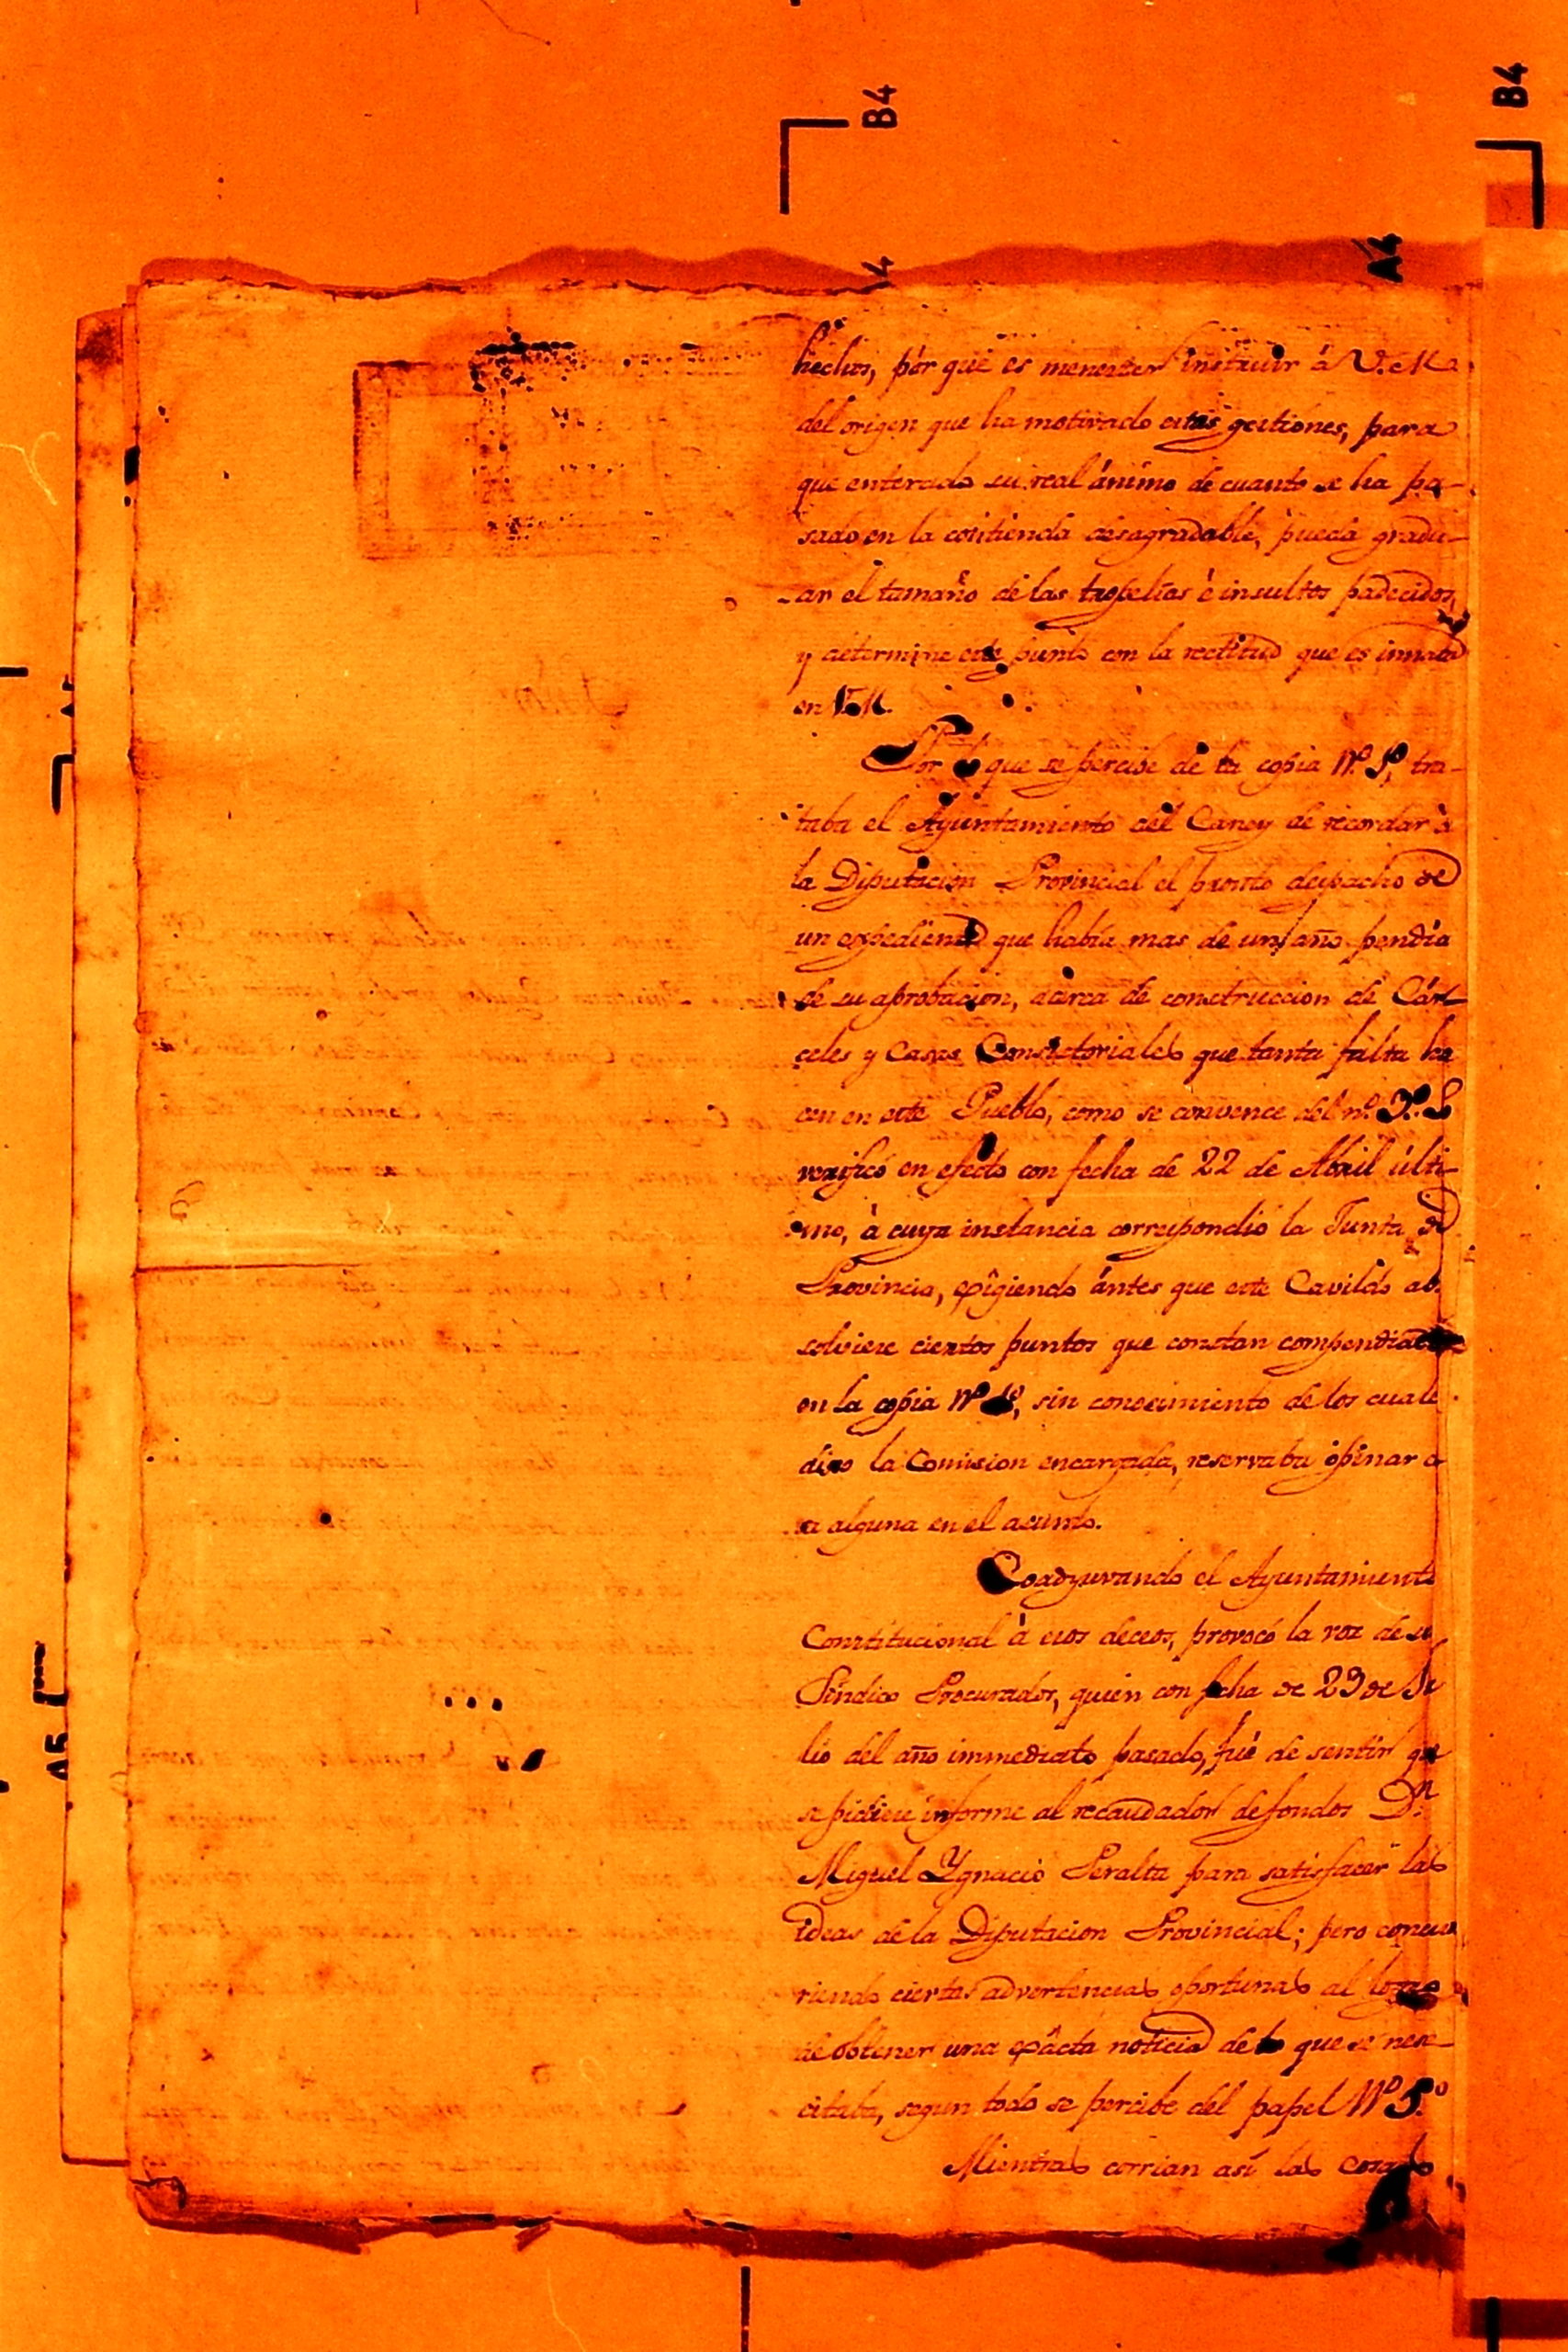 B4
B4
A4
hechos, pór que es menester instruir á V. M.
del origen que ha motivado estas gestiones, para
que enterado su real ánimo de cuanto se ha pa-
sado en la contienda desagradable, pueda gradu-
ar el tamaño de las tropelías é insultos padecidos,
y determine este punto con la rectitud que es innata
en V. M.
Por lo que se percibe de la copia Nº tra-
taba el Ayuntamiento del Caney de recordar à
la Diputacion Provincial el pronto despacho de
un expediente que habia mas de un año pendia
de su aprobacion, acerca de construccion de Cár-
celes y Casas Consistoriales que tanta falta ha
cen en este Pueblo, como se convence del nº 3º Lo
verificó en efecto con fecha de 22 de Abril últi-
mo, à cuya instancia correspondió la Junta de
Provincia, exîgiendo ántes que este Cavildo ab-
solviese ciertos puntos que constan compendiados
en la copia Nº sin conocimiento de los cuale
dixo la Comision encargada, reservaba opinar co
sa alguna en el asunto.
Coadyuvando el Ayuntamiento
Constitucional à esos deceos, provocó la voz de su
Síndico Procurador, quien con fecha de 23 de Ju
lio del año immediato pasado, fué de sentir que
se pidiese informe al recaudador de fondos Dn.
Miguel Ygnacio Peralta para satisfacer las
ideas de la Diputacion Provincial; pero concur
riendo ciertas advertencias oportunas al logro
de obtener una exâcta noticia de lo que se nese-
citaba, segun todo se percibe del papel Nº 5º
Mientras corrian así las cosas
A5